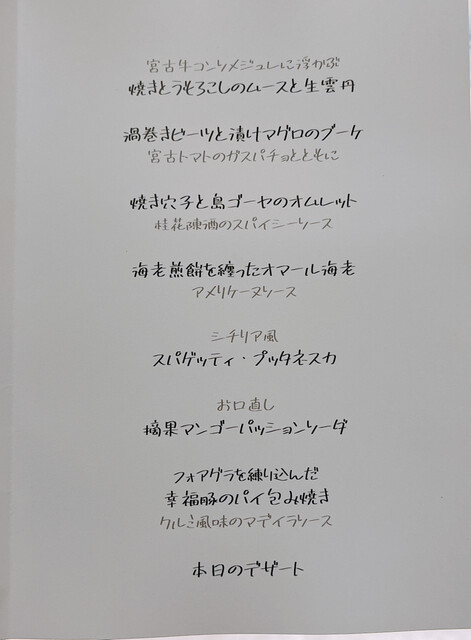 宮古牛コンソメジュレに浮かぶ
焼きとうもろこしのムースと生雲丹
渦巻きビーツと漬けマグロのブーケ
宮古トマトのガスパチョとともに
焼き穴子と島ゴーヤのオムレット
桂花陳酒のスパイシーソース
海老煎餅を纏ったオマール海老
アメリケーヌソース
シチリア風
スパゲッティ・プッタネスカ
お口直し
摘果マンゴーパッションソーダ
フォアグラを練り込んだ
幸福豚のパイ包み焼き
クルミ風味のマデイラソース
本日のデザート